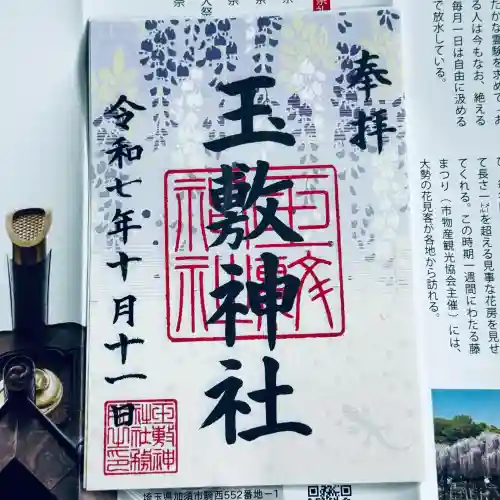 奉拝
玉敷神社
令和七年十月十一日
たかな霊験を求めて、お
る人は今もなお、絶える
毎月一日は自由に汲める
で放水している。
て長さ一㍍を超える見事な花房を見せ
てくれる。この時期一週間にわたる藤
まつり（市物産観光協会主催）には、
大勢の花見客が各地から訪れる。
埼玉県加須市騎西552番地ー1